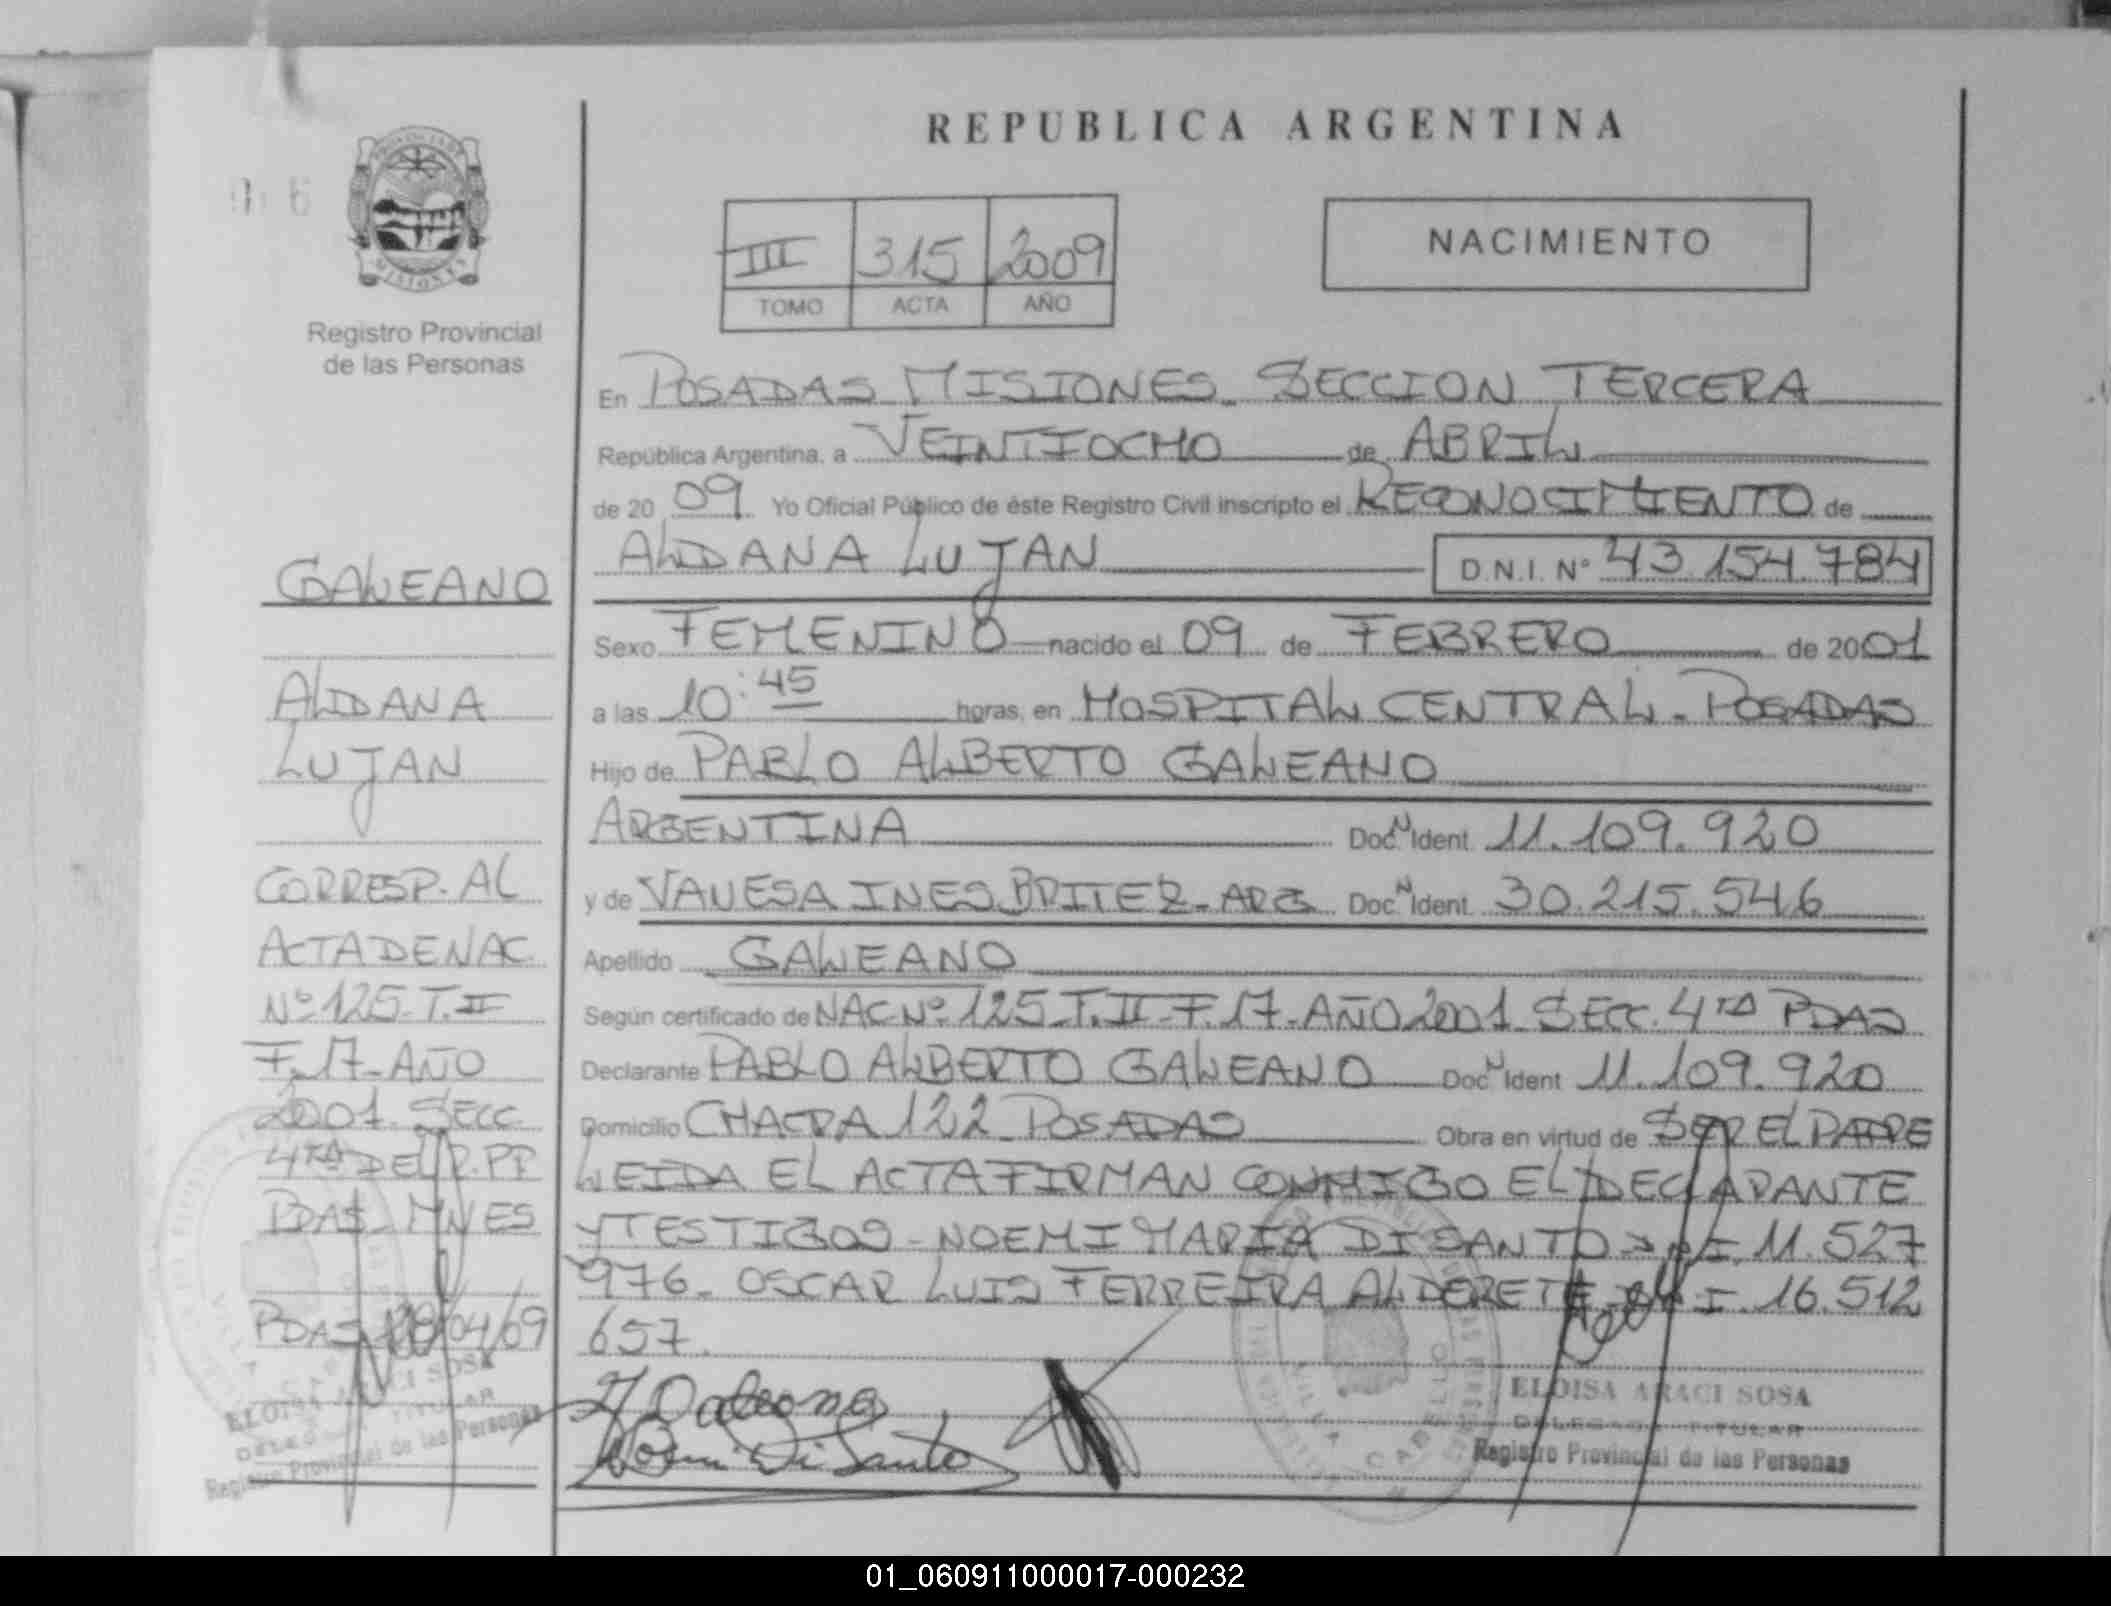 REPUBLICA ARGENTINA
III 315 2009
TOMO ACTA AÑO
NACIMIENTO
Registro Provincial
de las Personas
GALEANO
ALDANA
LUJAN
CORRESP. AL
ACTA DE NAC.
Nº 125-T.II
F.17-AÑO
2001. SECC.
4TA DEL R.PP
PDAS-MNES
PDAS 28/04/09
ELOISA ARACI SOSA
TITULAR
Registro Provincial de las Personas
En POSADAS MISIONES. SECCION TERCERA
República Argentina, a VEINTIOCHO de ABRIL
de 2009. Yo Oficial Público de éste Registro Civil inscripto el RECONOCIMIENTO de
ALDANA LUJAN D.N.I. Nº 43.154.784
Sexo FEMENINO nacido el 09 de FEBRERO de 2001
a las 10:45 horas, en HOSPITAL CENTRAL. POSADAS
Hijo de PABLO ALBERTO GALEANO
ARGENTINA Doc. N Ident. 11.109.920
y de VANESA INES BRITEZ-ARG Doc. N Ident. 30.215.546
Apellido GALEANO
Según certificado de NAC Nº 125-T.II-F.17-AÑO 2001 SECC. 4TA PDAS
Declarante PABLO ALBERTO GALEANO Doc. N Ident 11.109.920
Domicilio CHACRA 122 POSADAS Obra en virtud de SER EL PADRE
LEIDA EL ACTA FIRMAN CONMIGO EL DECLARANTE
Y TESTIGOS-NOEMI MARIA DI SANTO D.N.I. 11.527
976-OSCAR LUIS FERREIRA ALDERETE D.N.I. 16.512
657.
Noemi Di Santo
VILLA CABELLO
ELOISA ARACI SOSA
DELEGADA TITULAR
Registro Provincial de las Personas
01_060911000017-000232